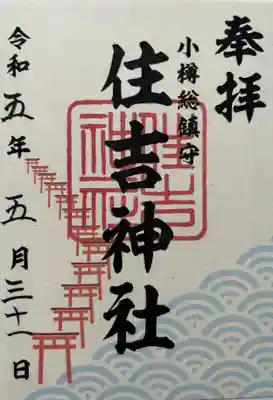 奉拝
小樽総鎮守
住吉神社
住吉神社
令和五年五月三十一日